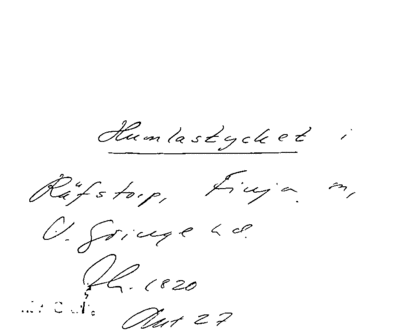 Humlastycket i
Räfstorp, Finja m,
V. Göinge hd.
Th. 1820
Ant 27